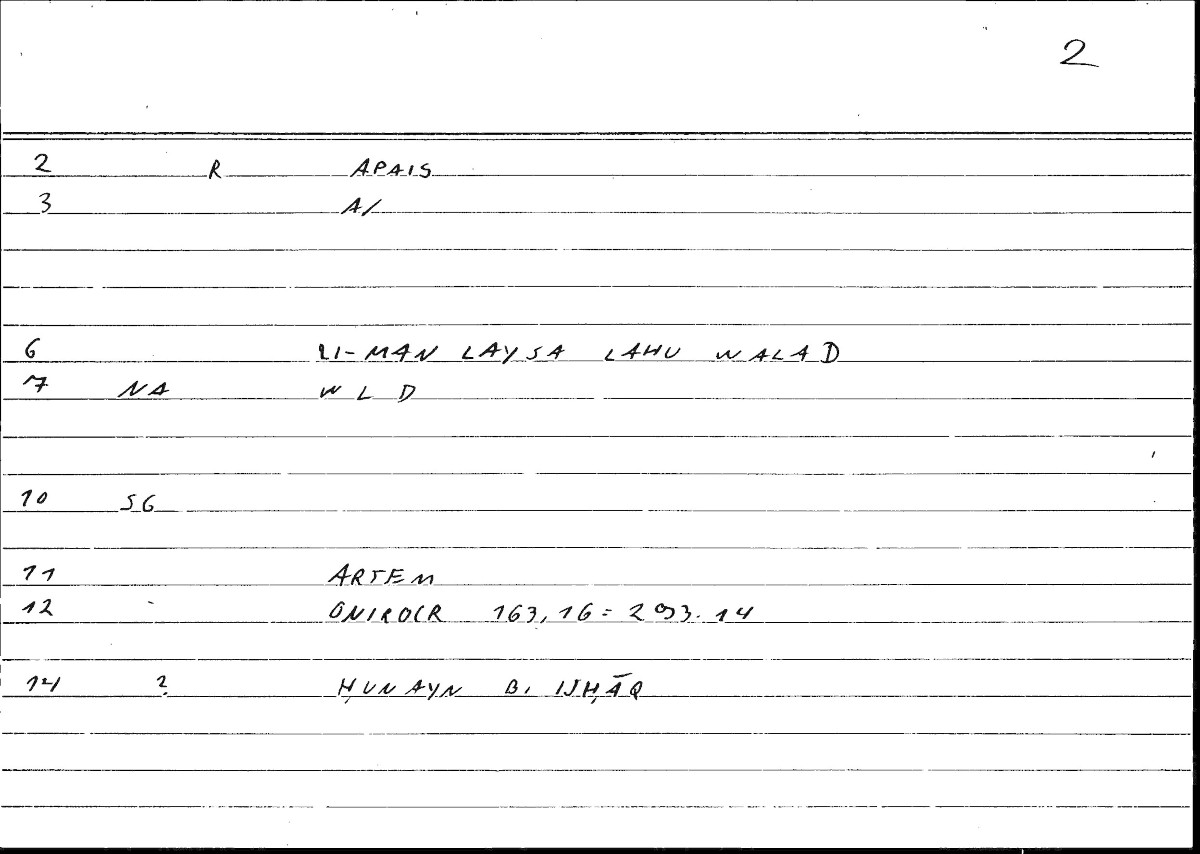 2
2 R APAIS
3 A/
6 LI-MAN LAYSA LAHU WALAD
7 NA W L D
10 SG
11 ARTEM
12 ONIROCR 163,16 = 293.14
14 ? ḤUNAYN B. ISḤĀQ